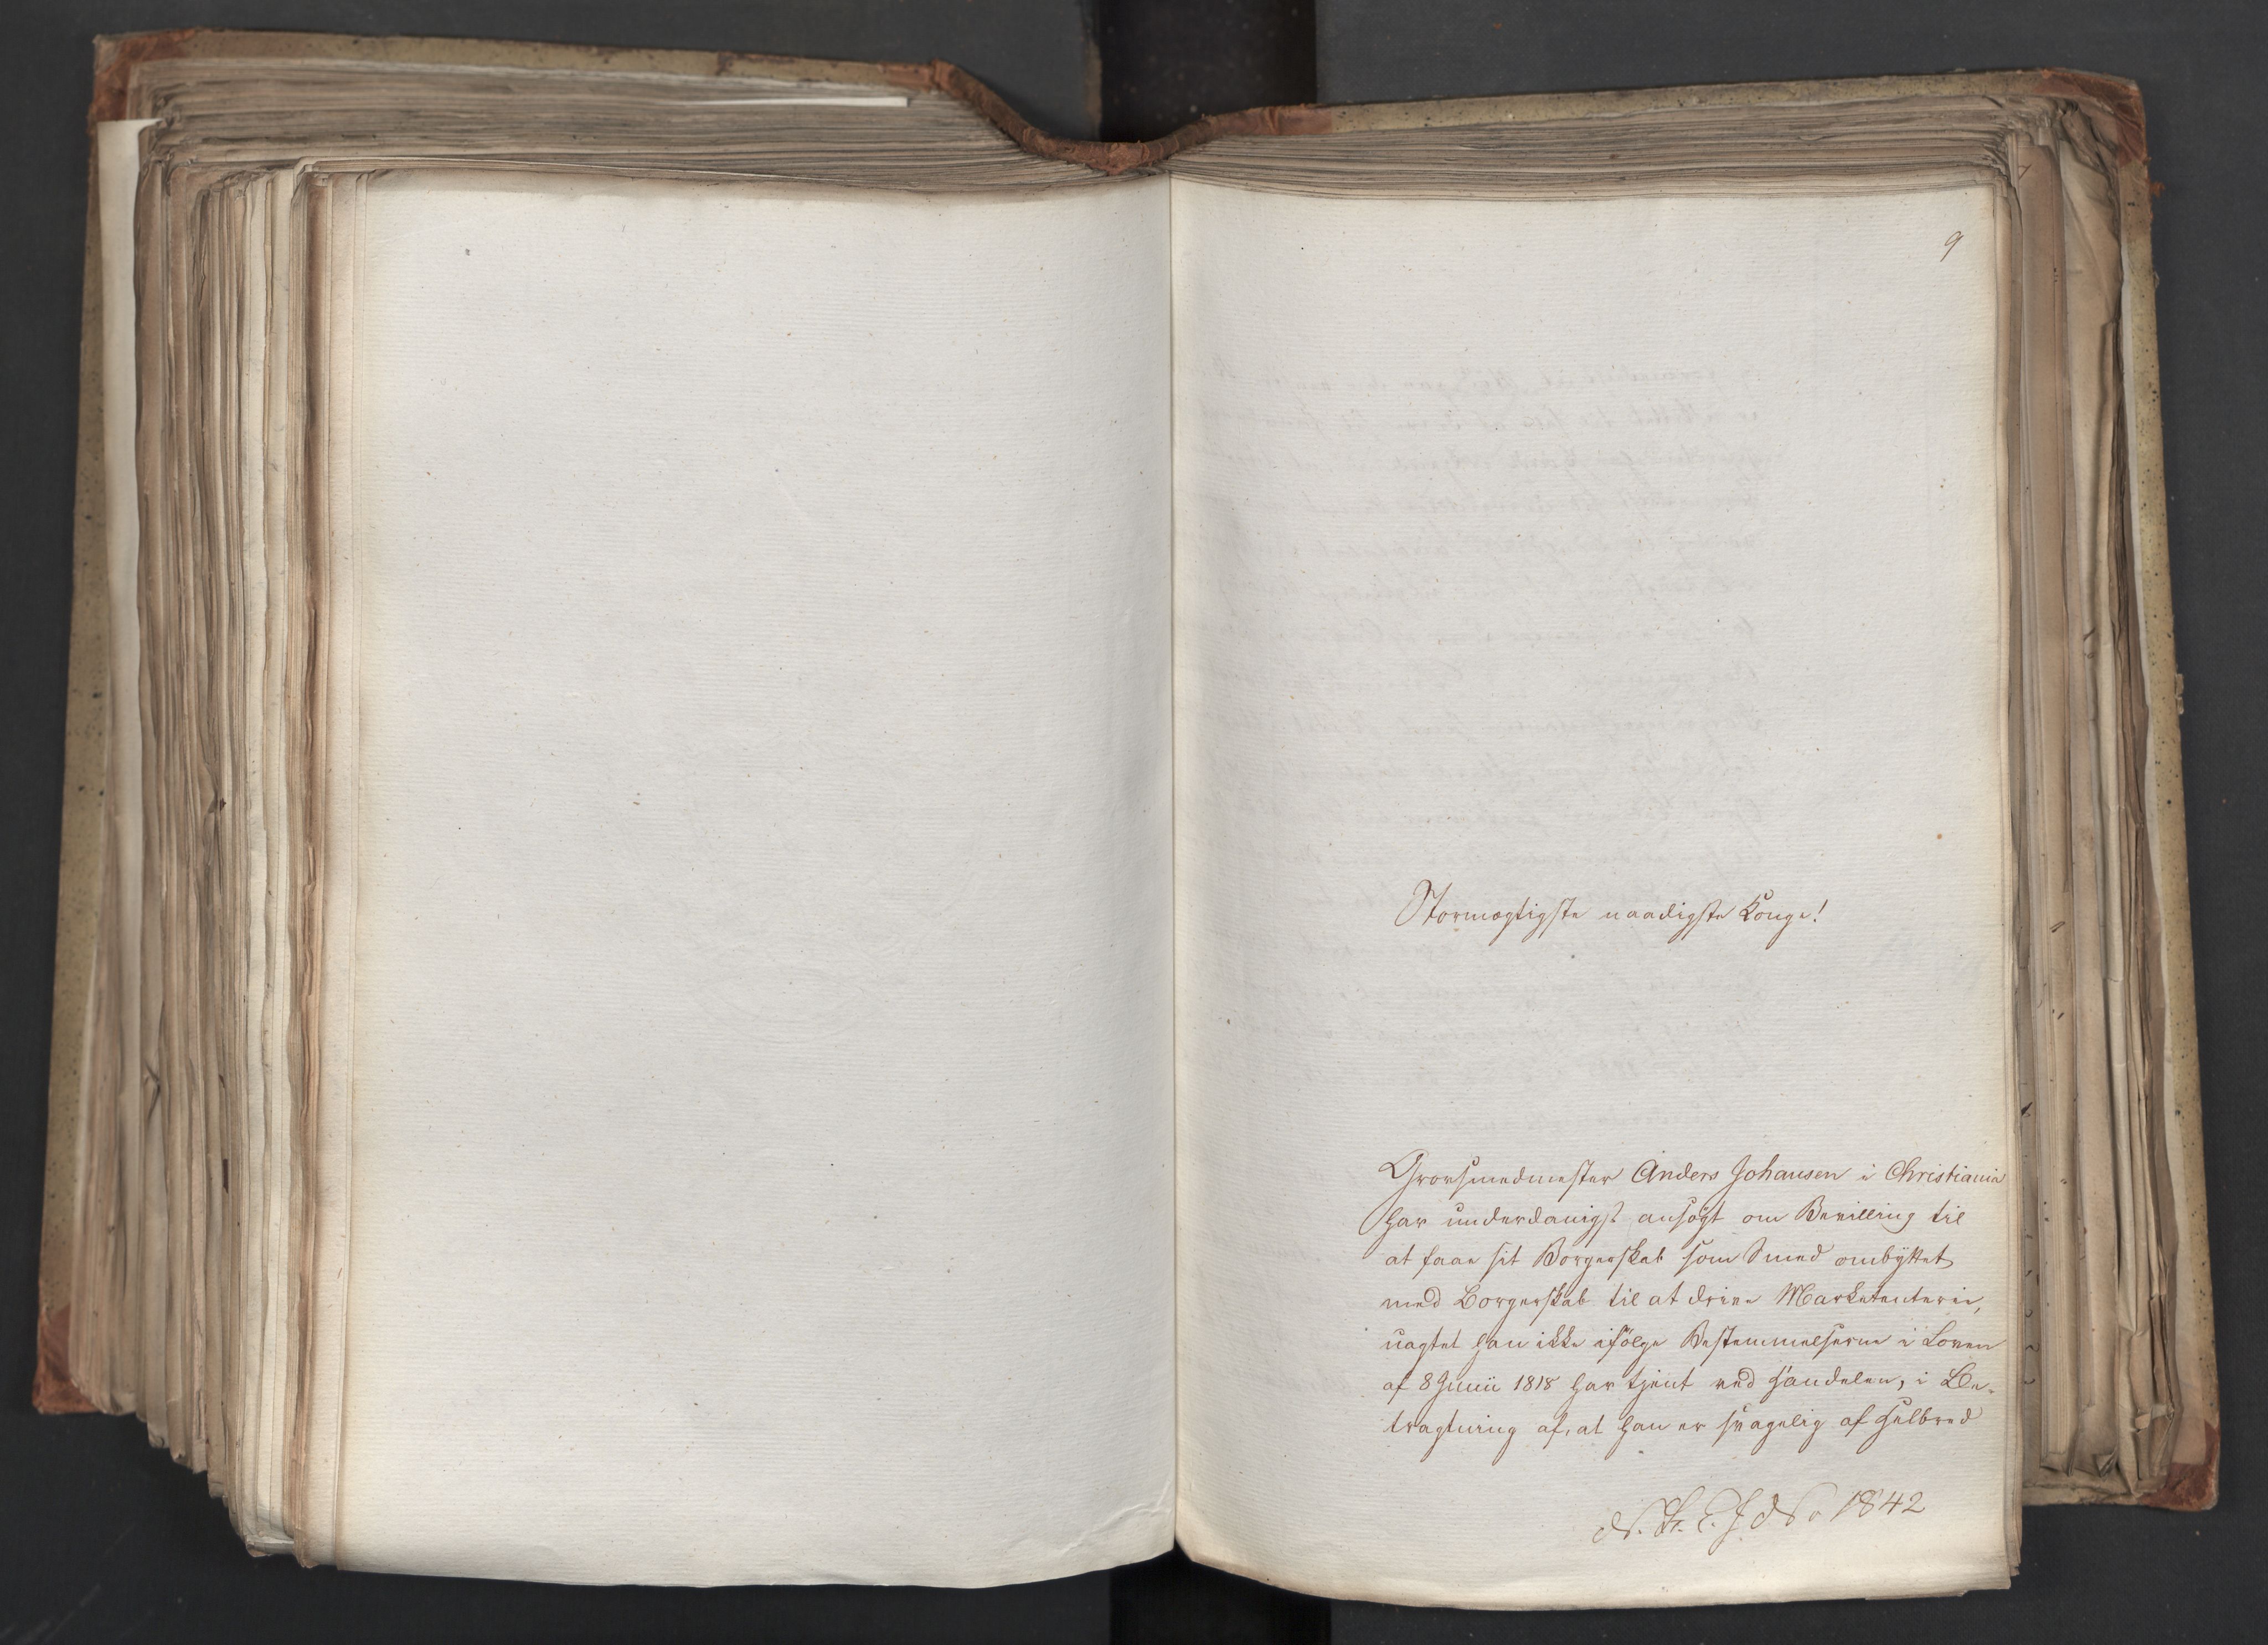 9
Stormægtigste naadigste Konge!
Grovsmedmester Anders Johansen i Christiania
har underdanigst ansøgt om Bevilling til
at faae sit Borgerskab som Smed ombyttet
med Borgerskab til at drive Marketenterie,
uagtet han ikke ifølge Bestemmelserne i Loven
af 8 Junii 1818 har tjent ved Handelen, i Be-
tragtning af, at han er svagelig af Helbred
1842